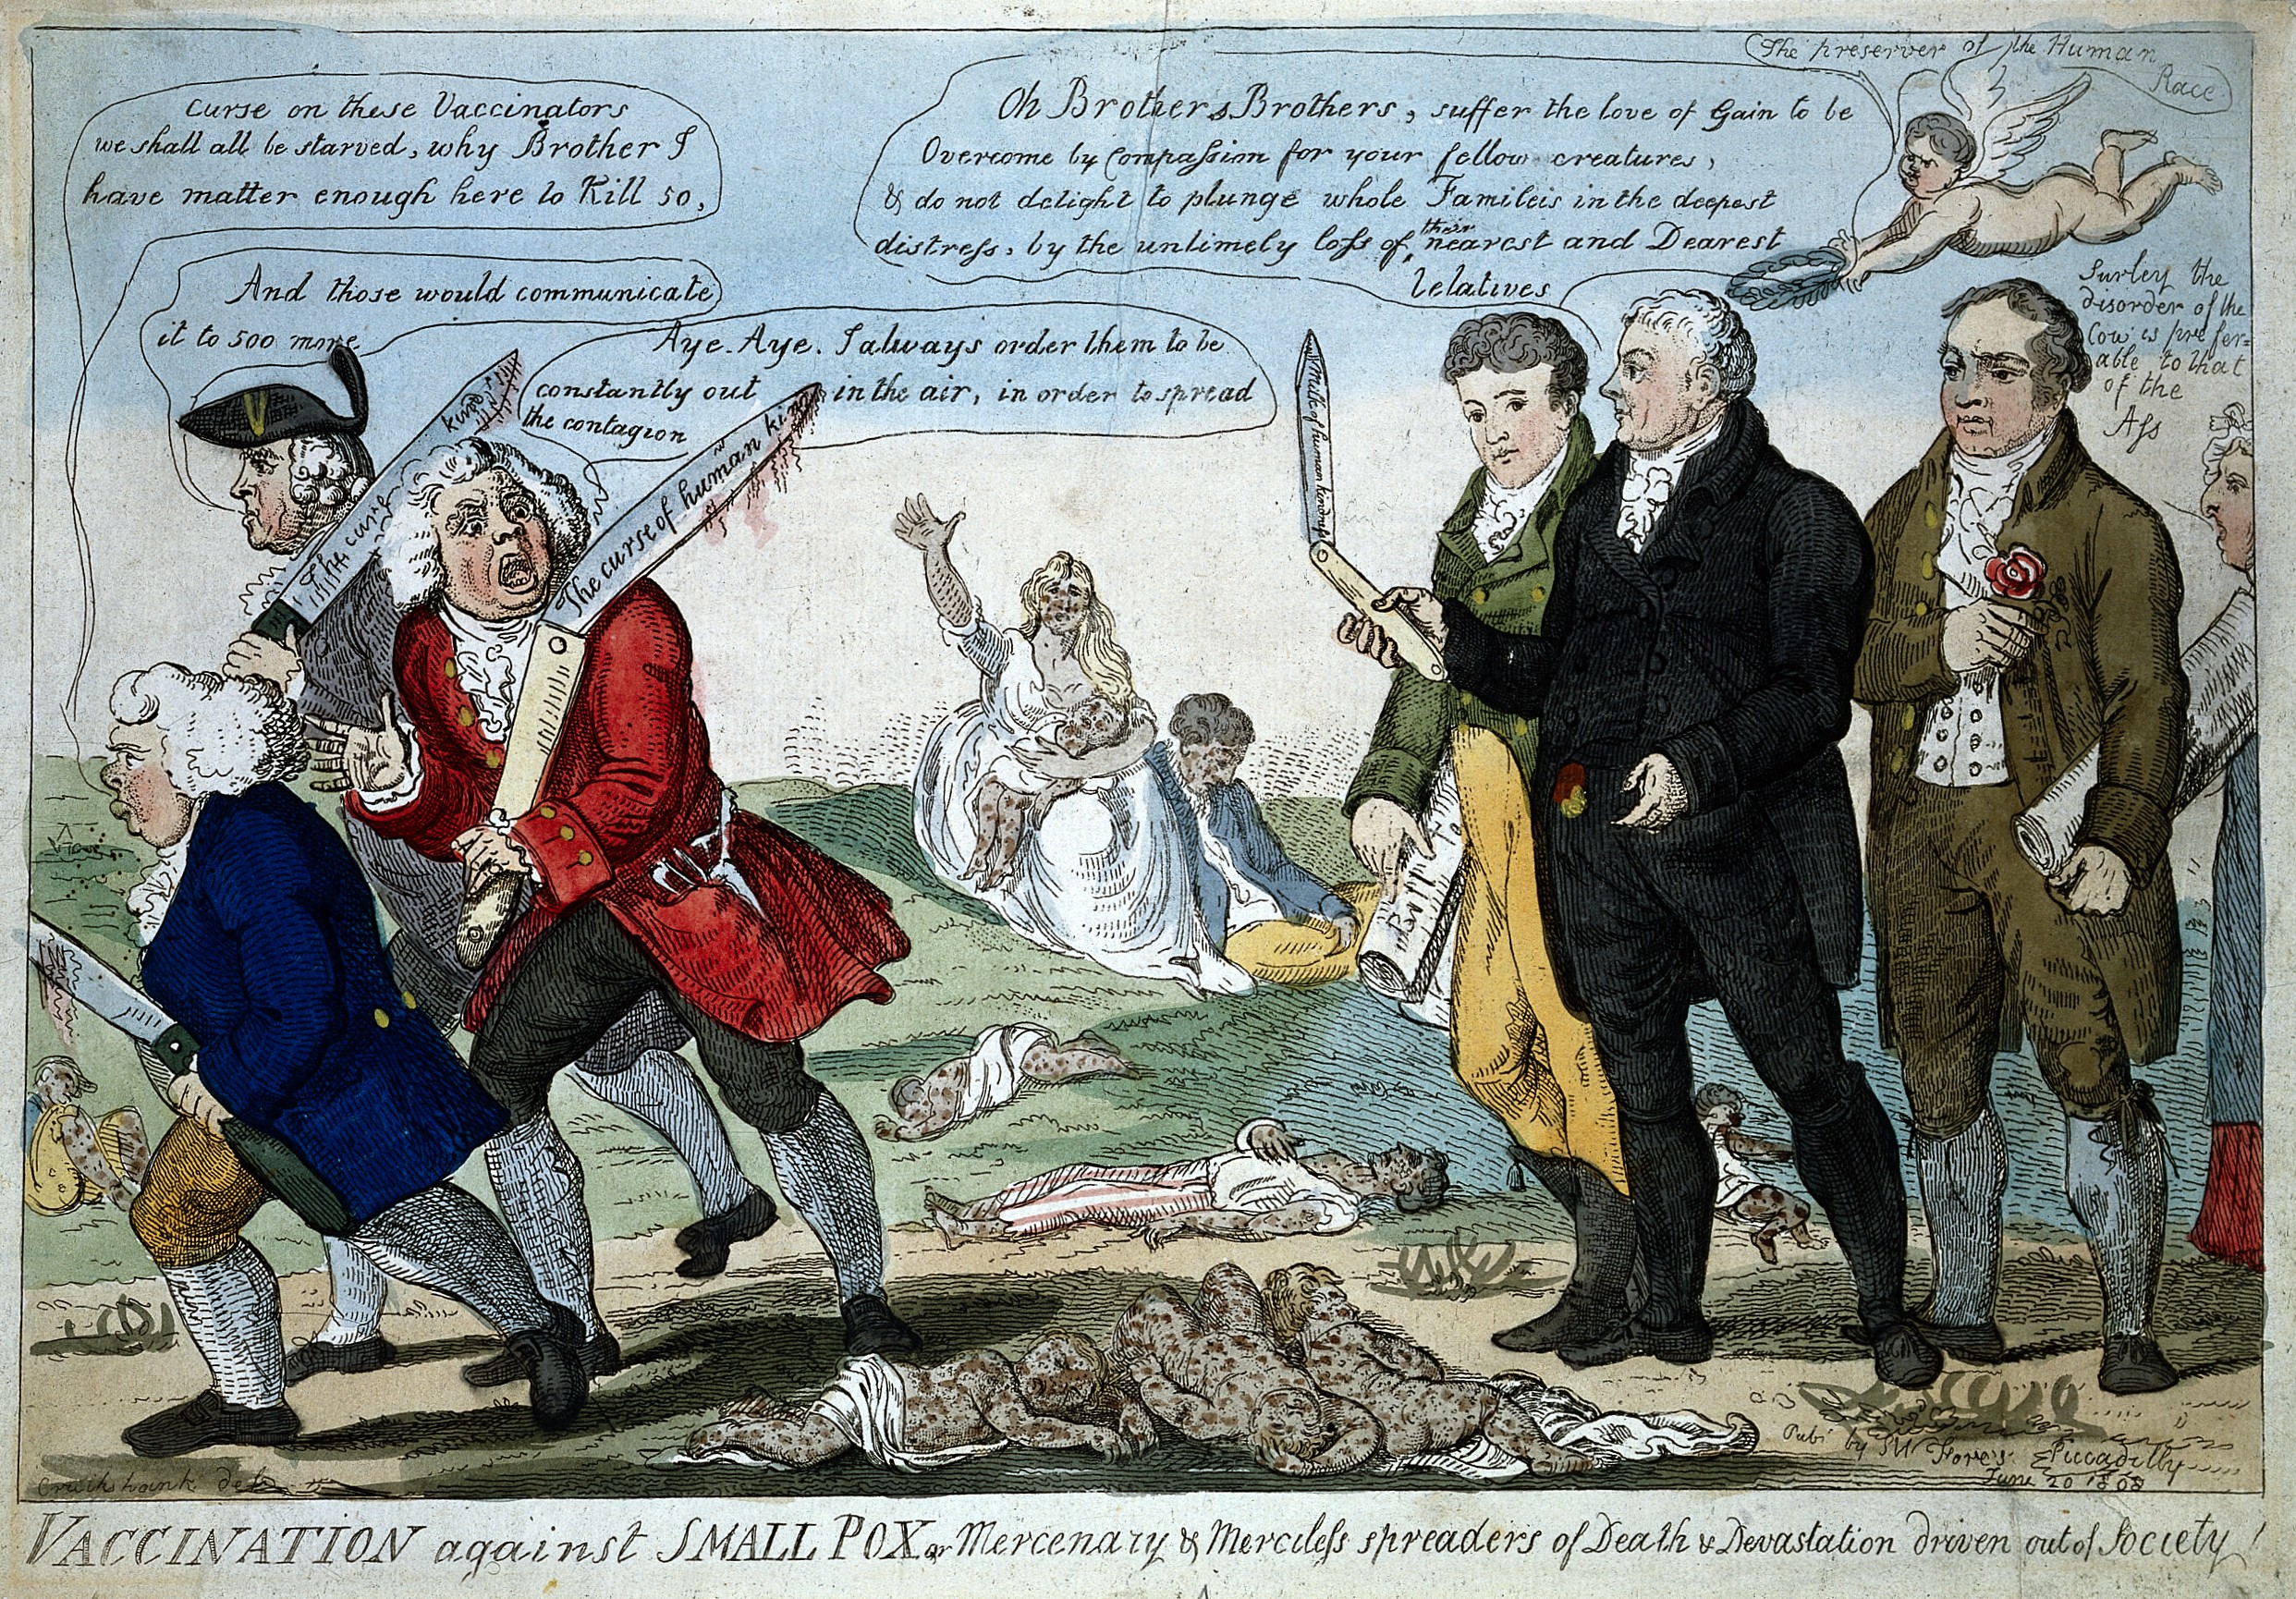 The preserver of the Human
Race
Curse on these Vaccinators
we shall all be starved, why Brother I
have matter enough here to Kill 50,
And those would communicate
it to 500 more
Aye-Aye. I always order them to be
constantly out in the air, in order to spread
the contagion
Oh Brothers Brothers, suffer the love of Gain to be
Overcome by Compaſsion for your fellow creatures,
& do not delight to plunge whole Famileis in the deepest
distreſs, by the untimely loſs of their nearest and Dearest
relatives
Surley the
disorder of the
Cow is prefer=
able to that
of the
Aſs
The curse of human kind
The curse of human kind
Milk of human kindneſs
Report
Cruikshank del
Pubd by SW Fores Piccadilly
June 20 1808
VACCINATION against SMALL POX, or Mercenary & Mercileſs spreaders of Death & Devastation driven out of Society!